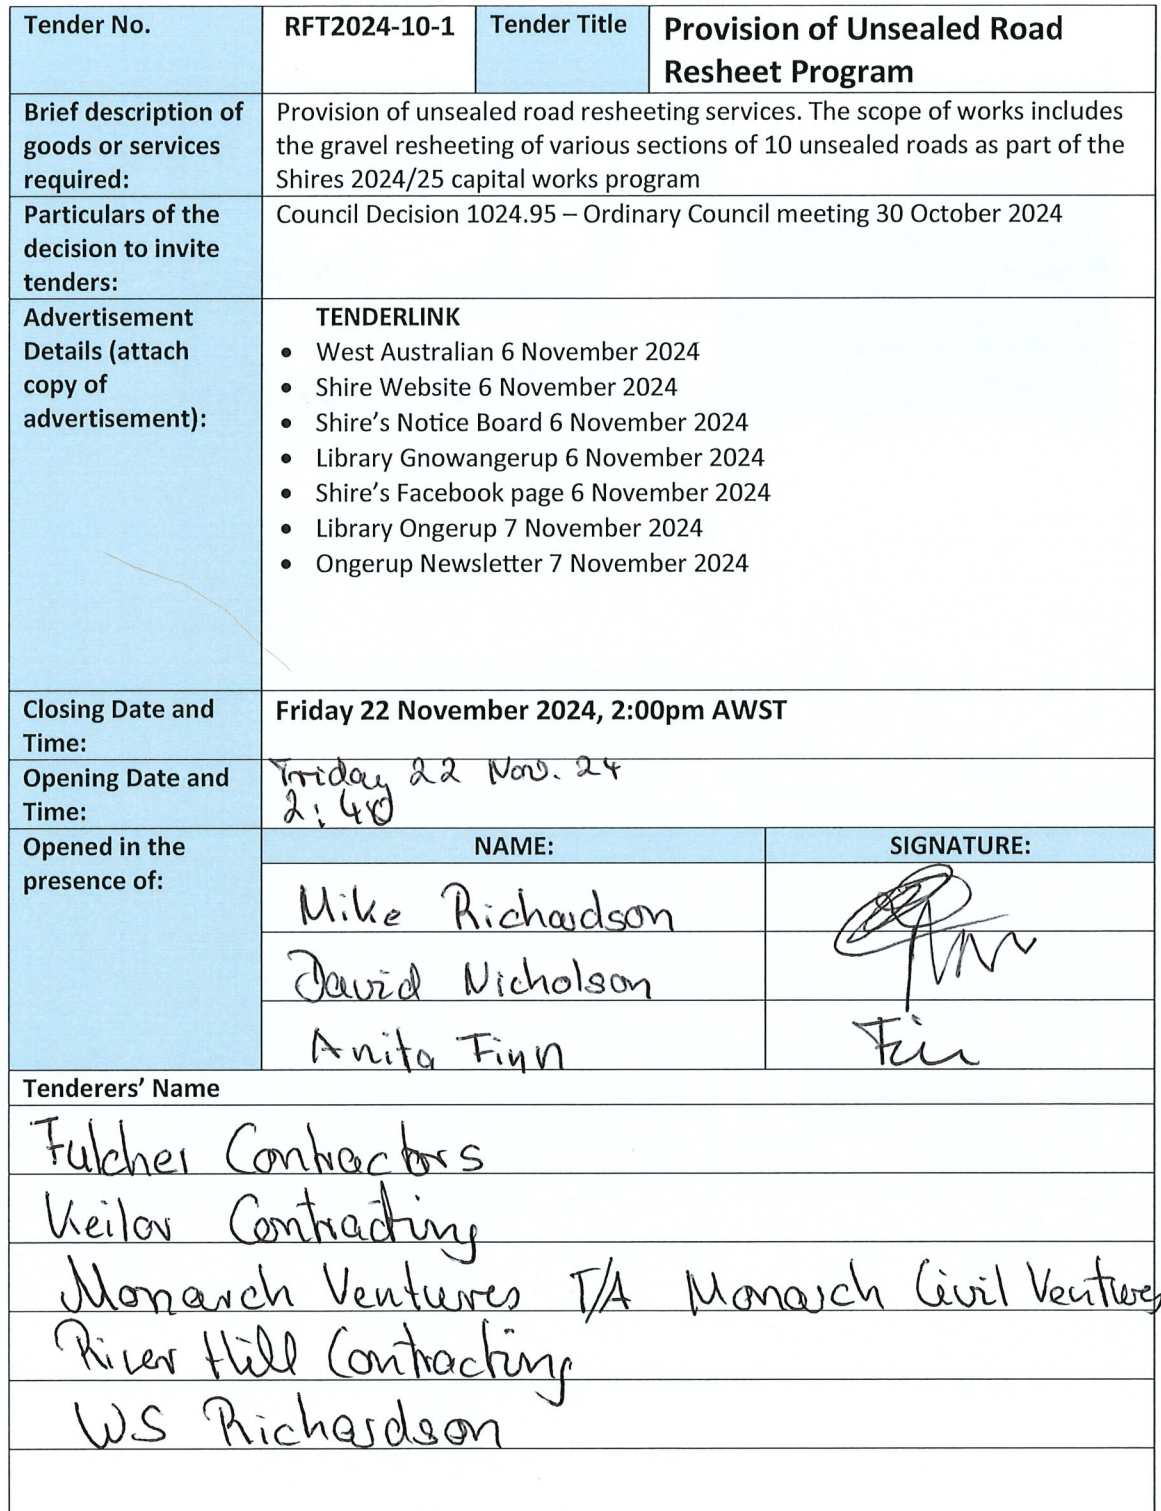 Tender No. RFT2024-10-1 Tender Title Provision of Unsealed Road
Resheet Program
Brief description of
goods or services
required:
Provision of unsealed road resheeting services. The scope of works includes
the gravel resheeting of various sections of 10 unsealed roads as part of the
Shires 2024/25 capital works program
Particulars of the
decision to invite
tenders:
Council Decision 1024.95 – Ordinary Council meeting 30 October 2024
Advertisement
Details (attach
copy of
advertisement):
TENDERLINK
• West Australian 6 November 2024
• Shire Website 6 November 2024
• Shire's Notice Board 6 November 2024
• Library Gnowangerup 6 November 2024
• Shire's Facebook page 6 November 2024
• Library Ongerup 7 November 2024
• Ongerup Newsletter 7 November 2024
Closing Date and
Time:
Friday 22 November 2024, 2:00pm AWST
Opening Date and
Time:
Friday 22 Nov. 24
2:40
Opened in the
presence of:
NAME: SIGNATURE:
Mike Richardson
David Nicholson
Anita Finn
Tenderers' Name
Fulcher Contractors
Keilor Contracting
Monarch Ventures T/A Monarch Civil Ventures
River Hill Contracting
WS Richardson